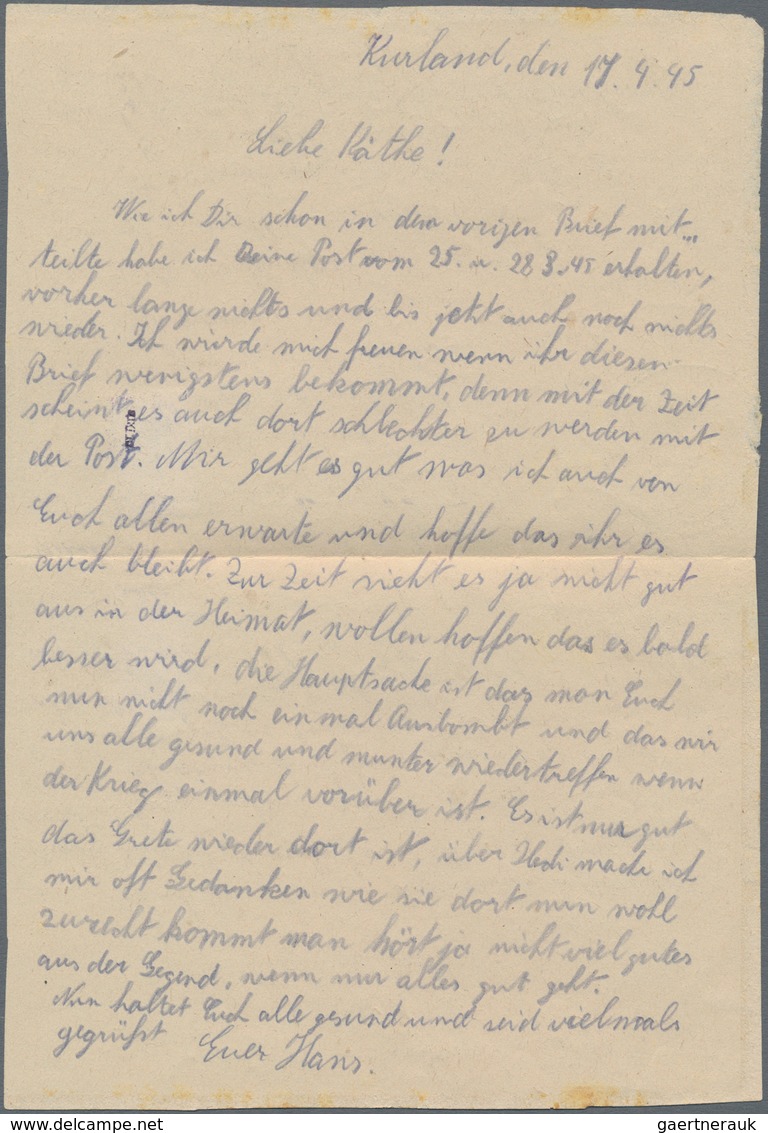 Kurland, den 17.4.45
Liebe Käthe!
Wie ich Dir schon in dem vorigen Brief mit-
teilte habe ich Deine Post vom 25. u. 28 3.45 erhalten,
vorher lange nichts und bis jetzt auch noch nichts
wieder. Ich würde mich freuen wenn ihr diesen
Brief wenigstens bekommt, denn mit der Zeit
scheint es auch dort schlechter zu werden mit
der Post. Mir geht es gut was ich auch von
Euch allen erwarte und hoffe das ihr es
auch bleibt. Zur Zeit sieht es ja nicht gut
aus in der Heimat, wollen hoffen das es bald
besser wird, die Hauptsache ist das man Euch
nun nicht noch einmal Ausbombt und das wir
uns alle gesund und munter wiedertreffen wenn
der Krieg einmal vorüber ist. Es ist nur gut
das Grete wieder dort ist, über Hedi mache ich
mir oft Gedanken wie sie dort nun wohl
zurecht kommt man hört ja nicht viel gutes
aus der Gegend, wenn nur alles gut geht.
Nun haltet Euch alle gesund und seid vielmals
gegrüßt Euer Hans.
www.delcampe.net
gaertnerauk